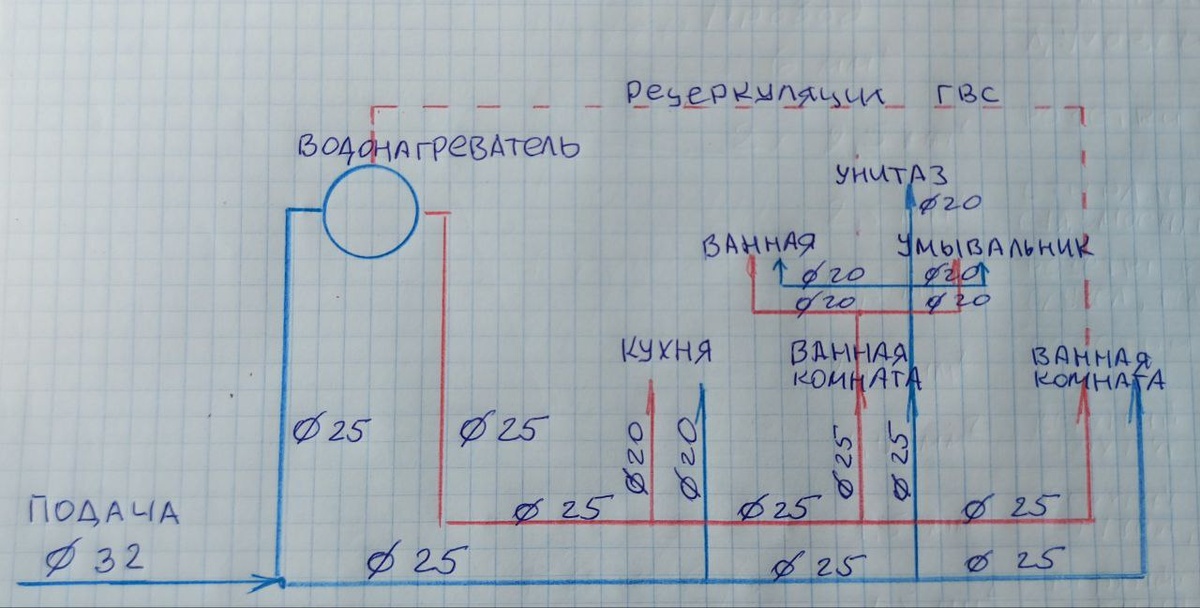 Рецеркуляции ГВС
ВОДОНАГРЕВАТЕЛЬ
УНИТАЗ
Ø20
ВАННАЯ УМЫВАЛЬНИК
Ø20 Ø20
Ø20 Ø20
КУХНЯ
ВАННАЯ
КОМНАТА
ВАННАЯ
КОМНАТА
Ø25
Ø25
Ø20
Ø20
Ø25
Ø25
ПОДАЧА
Ø 32
Ø 25
Ø25
Ø 25
Ø 25
Ø 25
Ø 25